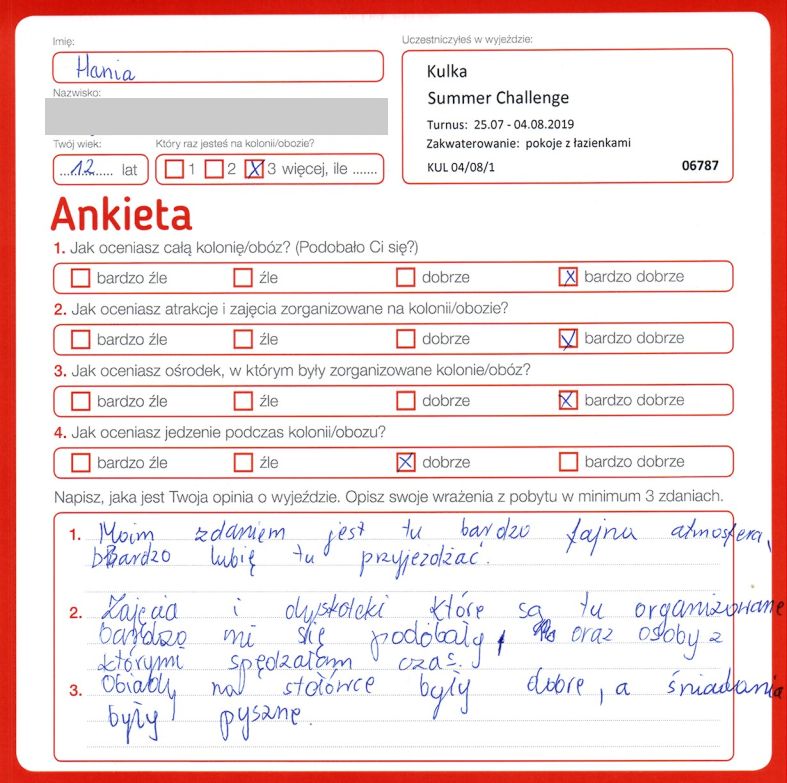 Imię:
Hania
Nazwisko:
Twój wiek:
12 lat
Który raz jesteś na kolonii/obozie?
1 2 3 więcej, ile .......
Uczestniczyłeś w wyjeździe:
Kulka
Summer Challenge
Turnus: 25.07 - 04.08.2019
Zakwaterowanie: pokoje z łazienkami
KUL 04/08/1 06787
Ankieta
1. Jak oceniasz całą kolonię/obóz? (Podobało Ci się?)
bardzo źle źle dobrze bardzo dobrze
2. Jak oceniasz atrakcje i zajęcia zorganizowane na kolonii/obozie?
bardzo źle źle dobrze bardzo dobrze
3. Jak oceniasz ośrodek, w którym były zorganizowane kolonie/obóz?
bardzo źle źle dobrze bardzo dobrze
4. Jak oceniasz jedzenie podczas kolonii/obozu?
bardzo źle źle dobrze bardzo dobrze
Napisz, jaka jest Twoja opinia o wyjeździe. Opisz swoje wrażenia z pobytu w minimum 3 zdaniach.
1. Moim zdaniem jest tu bardzo fajna atmosfera,
Bardzo lubię tu przyjezdżać.
2. Zajęcia i dyskoteki które są tu organizowane
bardzo mi się podobały, oraz osoby z
którymi spędzałam czas.
3. Obiady na stołówce były dobre, a śniadania
były pyszne.